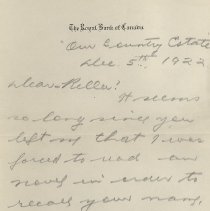 The Royal Bank of Canada
"Our Country Estate
Dec. 5th 1922
Dear Keller!
It seems
so long since you
left me that I was
forced to read an
novel in order to
recall your name,